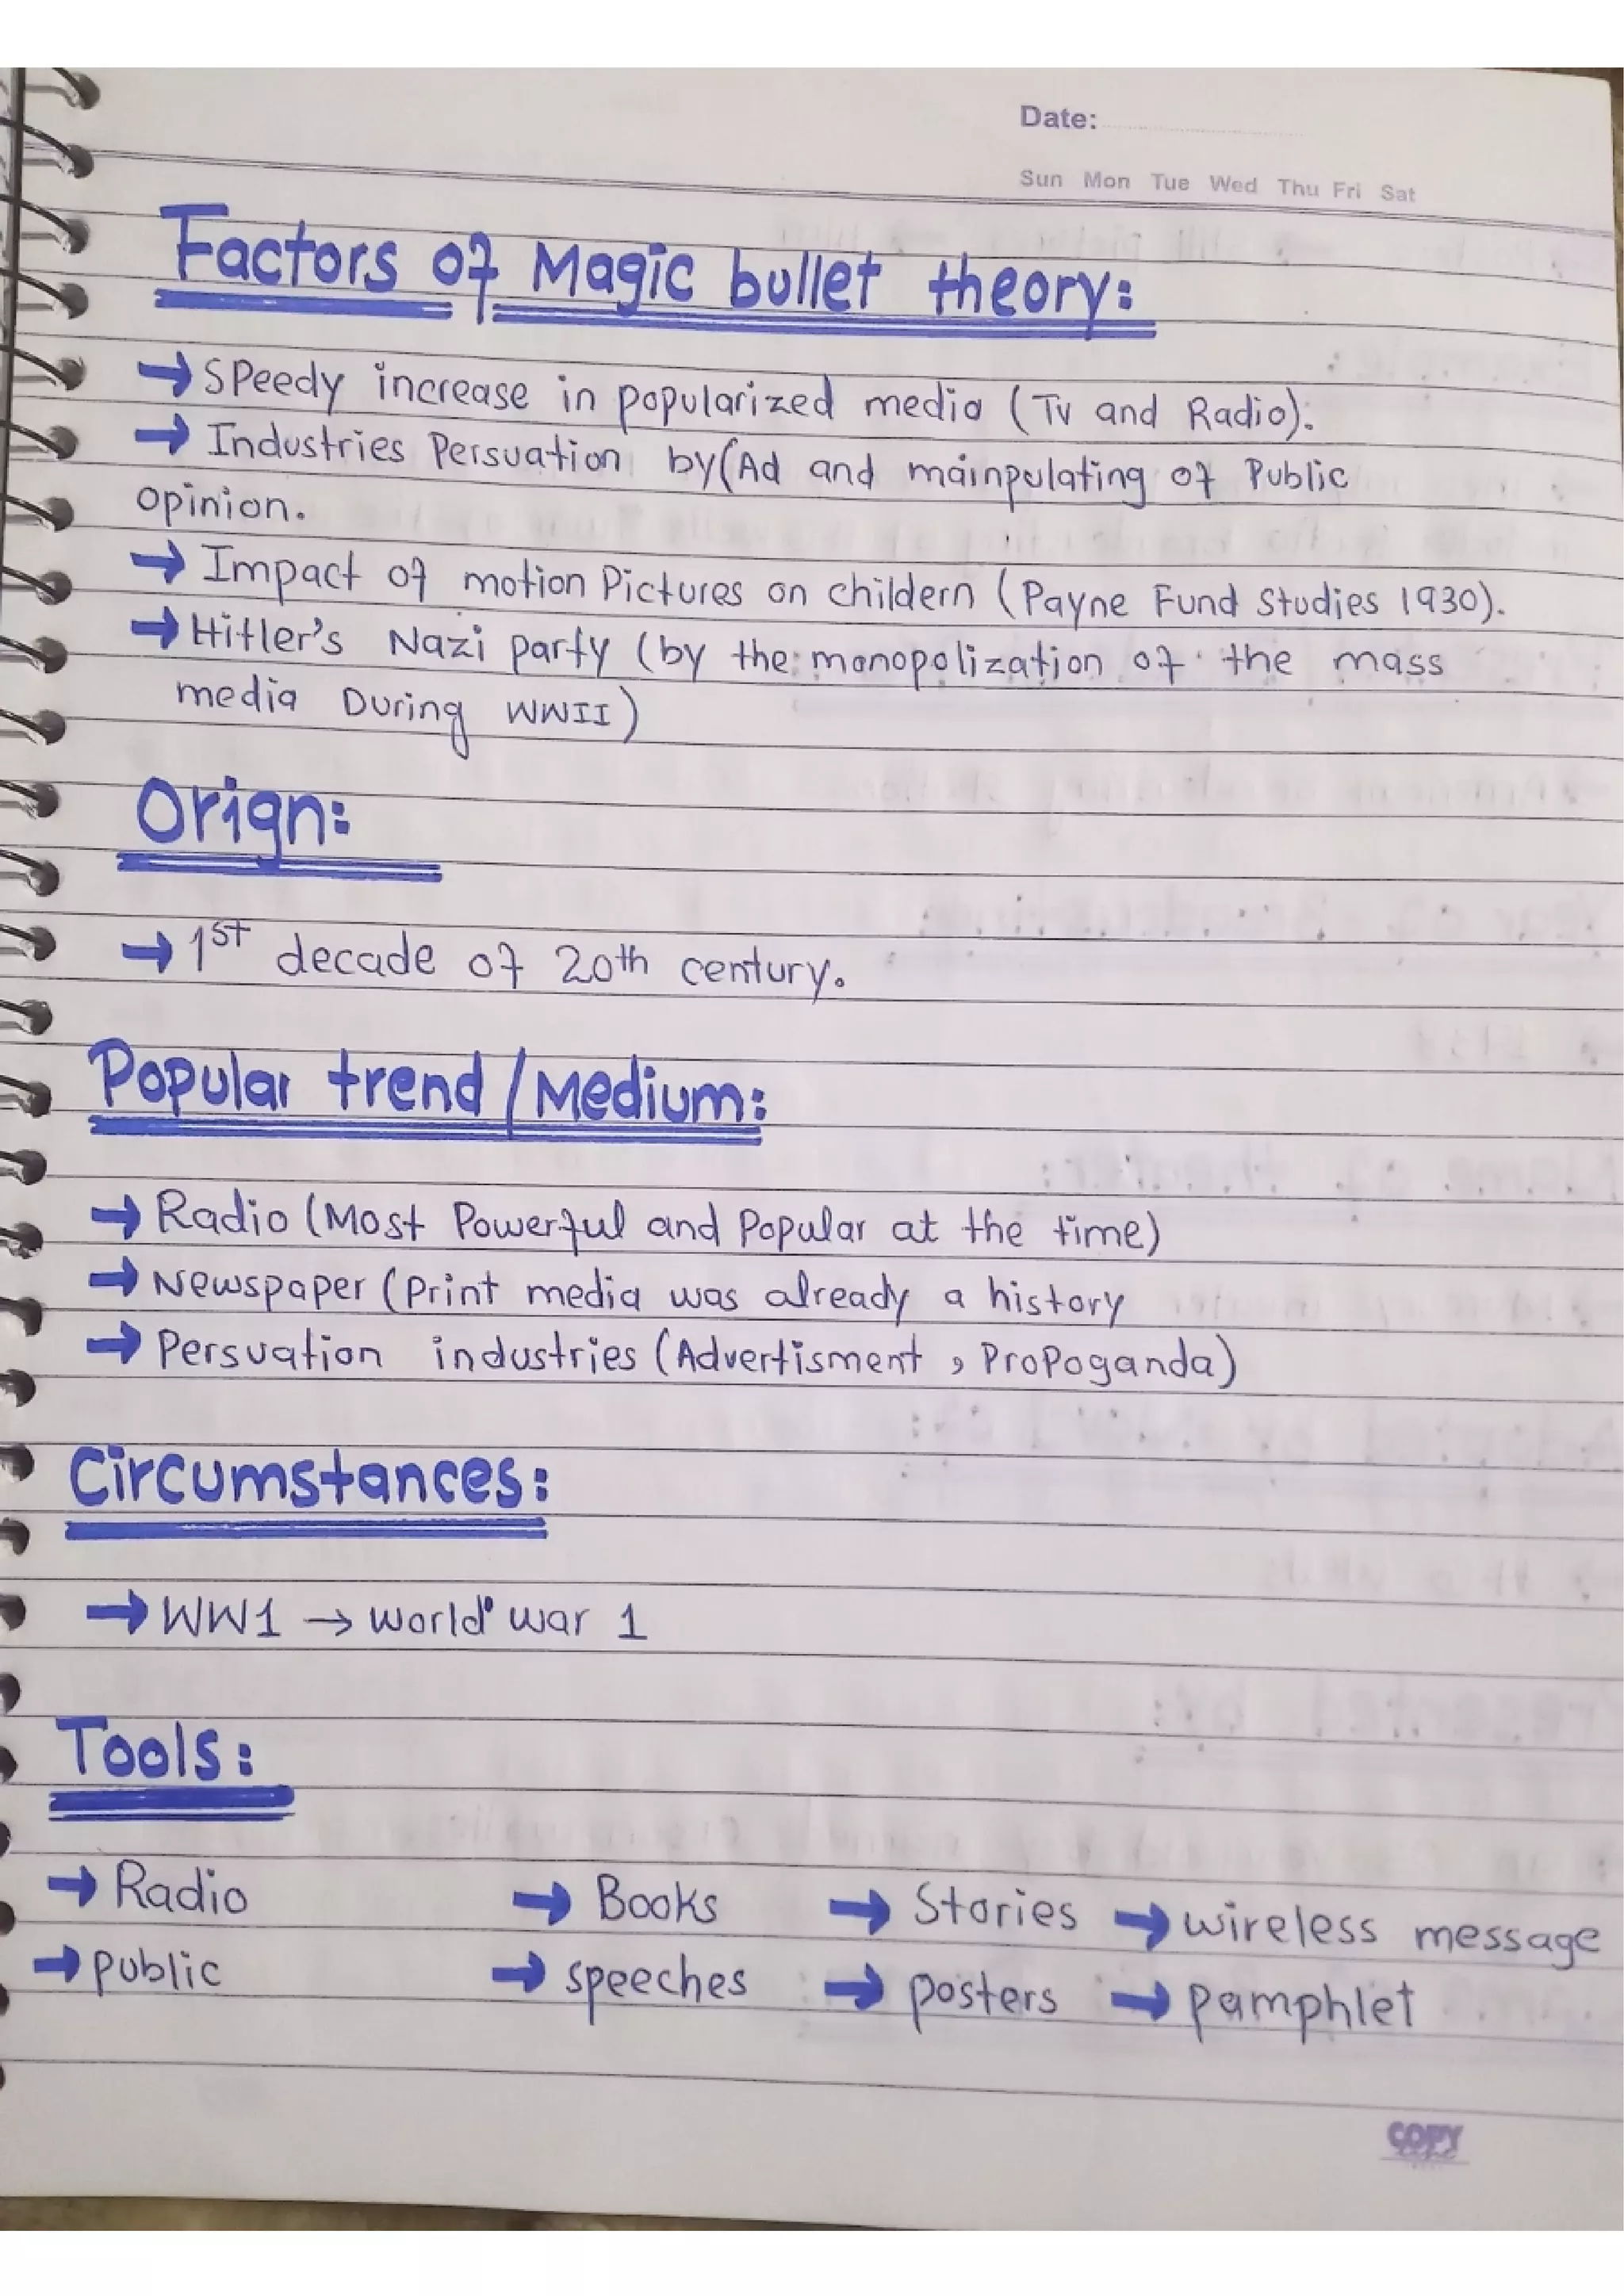 Date:
Sun Mon Tue Wed Thu Fri Sat
Factors of Magic bullet theory:
→ Speedy increase in popularized media (Tv and Radio).
→ Industries Persuation by(Ad and mainpulating of Public
opinion.
→ Impact of motion Pictures on childern (Payne Fund Studies 1930).
→ Hitler's Nazi party (by the monopolization of the mass
media During WWII)
Orign:
→ 1st decade of 20th century.
Popular trend/Medium:
→ Radio (Most Powerful and Popular at the time)
→ Newspaper (Print media was already a history
→ Persuation industries (Advertisment, Propoganda)
Circumstances:
→ WW1 → world war 1
Tools:
→ Radio → Books → Stories → wireless message
→ public → speeches → posters → pamphlet
COPY